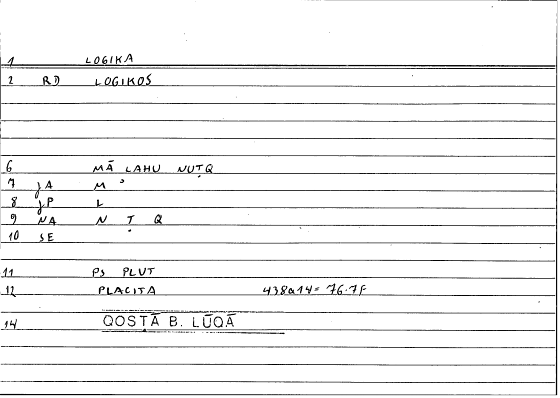 1 LOGIKA
2 RD LOGIKOS
6 MĀ LAHU NUṬQ
7 JA M ʾ
8 JP L
9 NA N Ṭ Q
10 SE
11 PS PLUT
12 PLACITA 438a14= 76.7f
14 QOSṬĀ B. LŪQĀ